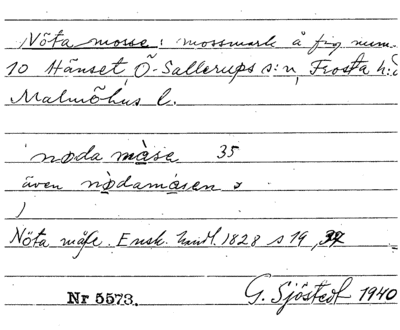 Nöta mosse: mossmark å fig num.
10 Hänset, Ö-Sallerups s:n, Frosta h:d
Malmöhus l.
nøda måse 35
även nødamåsen
)
Nöta måse. Ensk. handl. 1828 s 19,
Nr 5573. G. Sjöstedt 1940